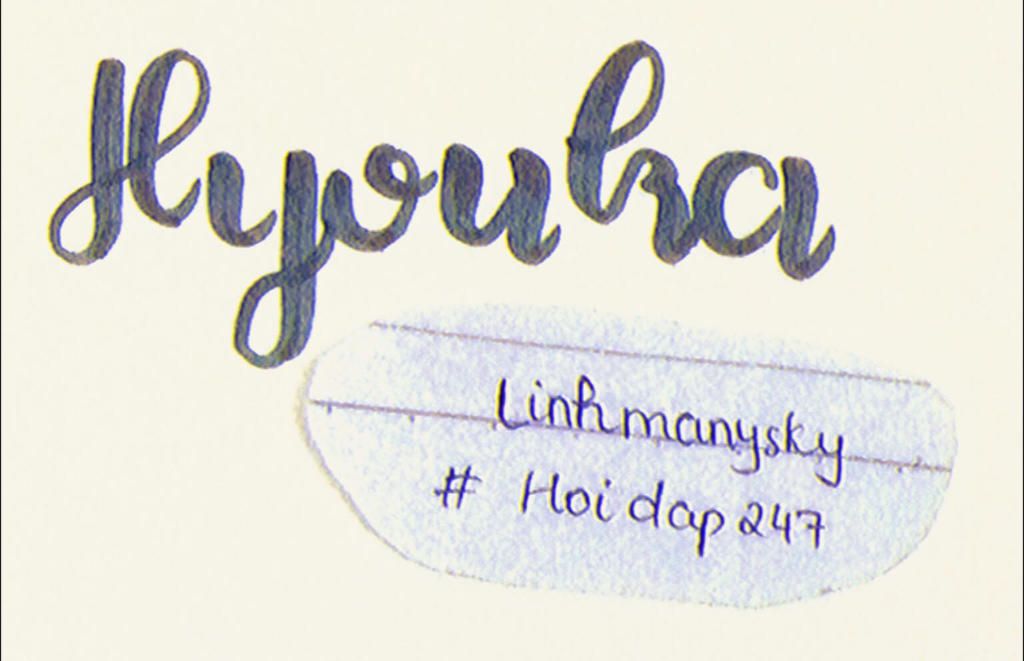 Hyouka
Linhmanysky
# Hoidap247